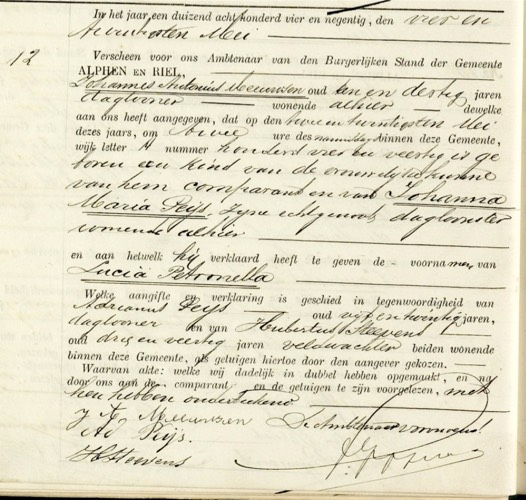 In het jaar een duizend acht honderd vier en negentig, den vier en
twintigsten Mei
12
Verscheen voor ons Ambtenaar van den Burgerlijken Stand der Gemeente
ALPHEN EN RIEL,
Johannes Antonius Meeuwsen oud een en dertig jaren
daglooner wonende alhier dewelke
aan ons heeft aangegeven, dat op den twee en twintigsten Mei
dezes jaars, om twee ure des namiddags binnen deze Gemeente,
wijk letter A nummer honderd vier en veertig is ge
boren een kind van de vrouwelijke kunne
van hem comparant en van Johanna
Maria Peijs, zijne echtgenoote dagloonster
wonende alhier
en aan hetwelk hij verklaard heeft te geven de voornamen van
Lucia Petronella
Welke aangifte en verklaring is geschied in tegenwoordigheid van
Adrianus Peijs oud vijf en twintig jaren,
daglooner en van Hubertus Steevens
oud drie en veertig jaren veldwachter beiden wonende
binnen deze Gemeente, als getuigen hiertoe door den aangever gekozen.
Waarvan akte: welke wij dadelijk in dubbel hebben opgemaakt, en na
door ons aan de comparant en de getuigen te zijn voorgelezen, met
hen hebben onderteekend
J A Meeuwsen De Ambtenaar voornoemd
Ad. Peijs.
H Steevens